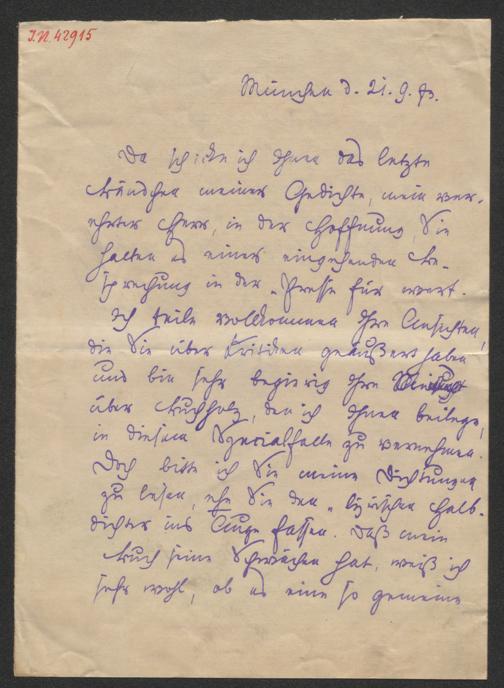 I.N. 42915
München d. 21. 9. 93.
Da schicke ich Ihnen das letzte
Bändchen meiner Gedichte, mein ver-
ehrter Herr, in der Hoffnung, Sie
halten es einer eingehenden Be-
sprechung in der „Presse für wert.
Ich teile vollkommen Ihre Ansichten,
die Sie über Kritiken geäußert haben
und bin sehr begierig Ihre
über Buchholz, den ich Ihnen beilege,
in diesem Spezialfalle zu vernehmen.
Doch bitte ich Sie meine Dichtungen
zu lesen, ehe Sie den „lyrischen Halb-
dichter ins Auge fassen. Daß mein
Buch seine Schwächen hat, weiß ich
sehr wohl, ob es eine so gemeine